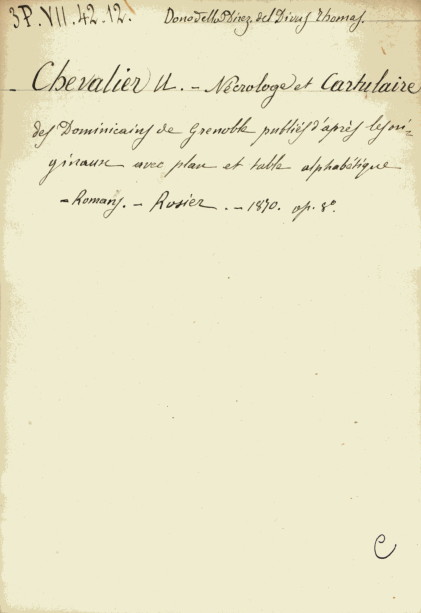 3P.VII.42.12. Dono della Direz. del Divus Thomas.
- Chevalier U. - Nécrologe et Cartulaire
des Dominicains de Grenoble publiés d'après les ori-
ginaux avec plan et table alphabétique
- Romans. - Rosier. - 1870. op. 8°.
C